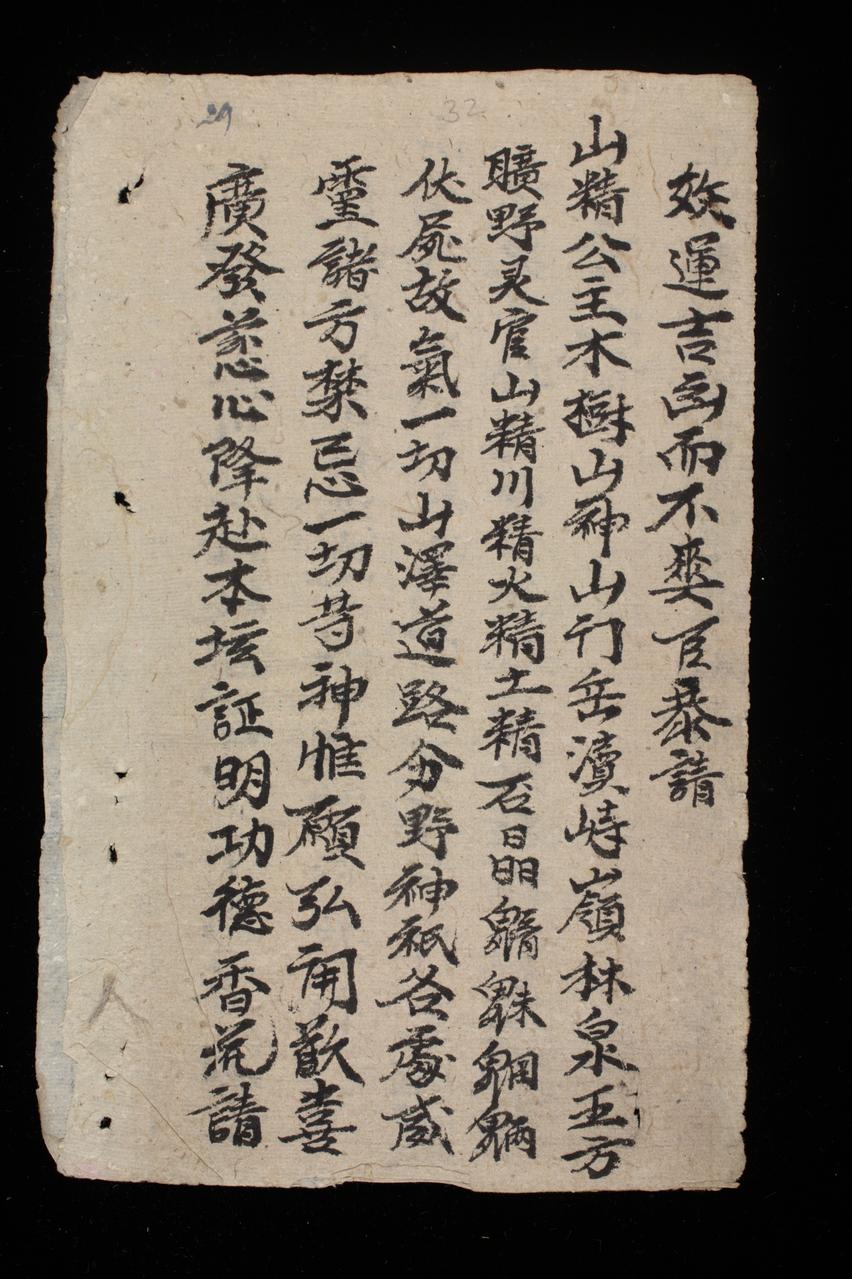 32
29
效運吉凶而不爽百恭請
山精公主木樹山神山行岳瀆峙嶺林泉五方
曠野灵官山精川精火精土精石晶
伏屍故氣一切山澤道路分野神祇各處威
靈諸方禁忌一切等神惟願弘開歡喜
廣發慈心降赴本坛証明功德香花請